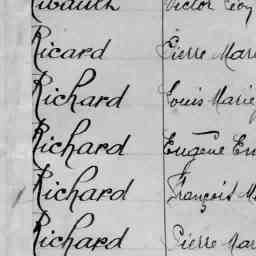 Victor Léon
Ricard Pierre Mari
Richard Louis Marie
Richard Eugène Em
Richard François M
Richard Pierre Mar